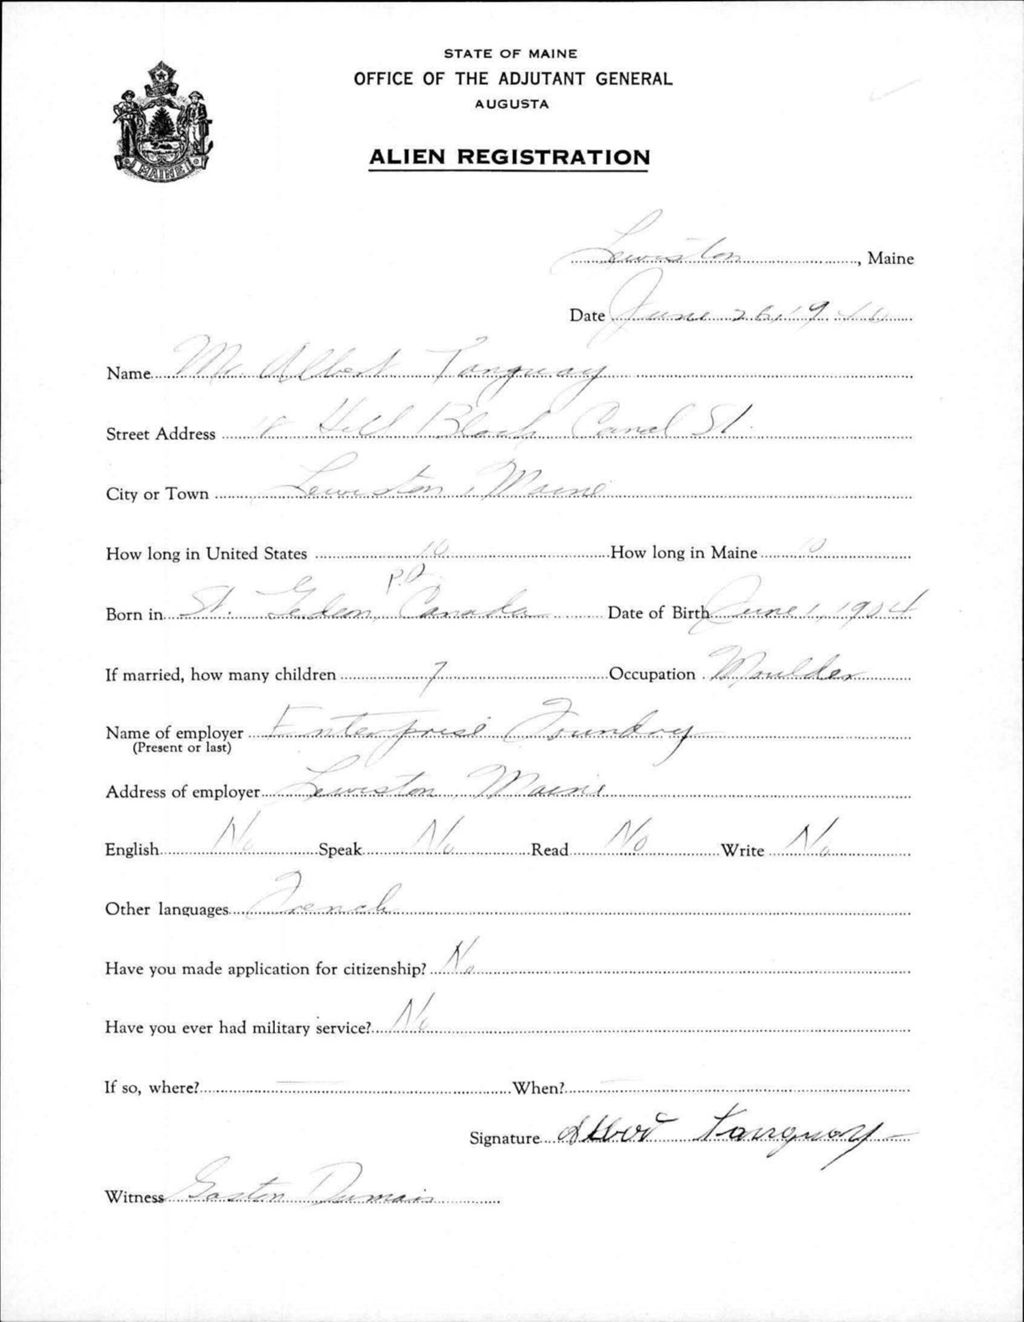 STATE OF MAINE
OFFICE OF THE ADJUTANT GENERAL
AUGUSTA
MAINE
ALIEN REGISTRATION
Lewiston, Maine
Date June 26, 1940
Name Mr Albert Tanguay
Street Address 18 Hill Block Canal St.
City or Town Lewiston, Maine
How long in United States 10 How long in Maine 10
P.Q.
Born in St. Gedeon, Canada Date of Birth June 1, 1904
If married, how many children 7 Occupation Moulder
Name of employer Enterprise Foundry
(Present or last)
Address of employer Lewiston, Maine
English No Speak No Read No Write No
Other languages French
Have you made application for citizenship? No
Have you ever had military service? No
If so, where? — When? —
Signature Albert Tanguay
Witness Gaston Dumais